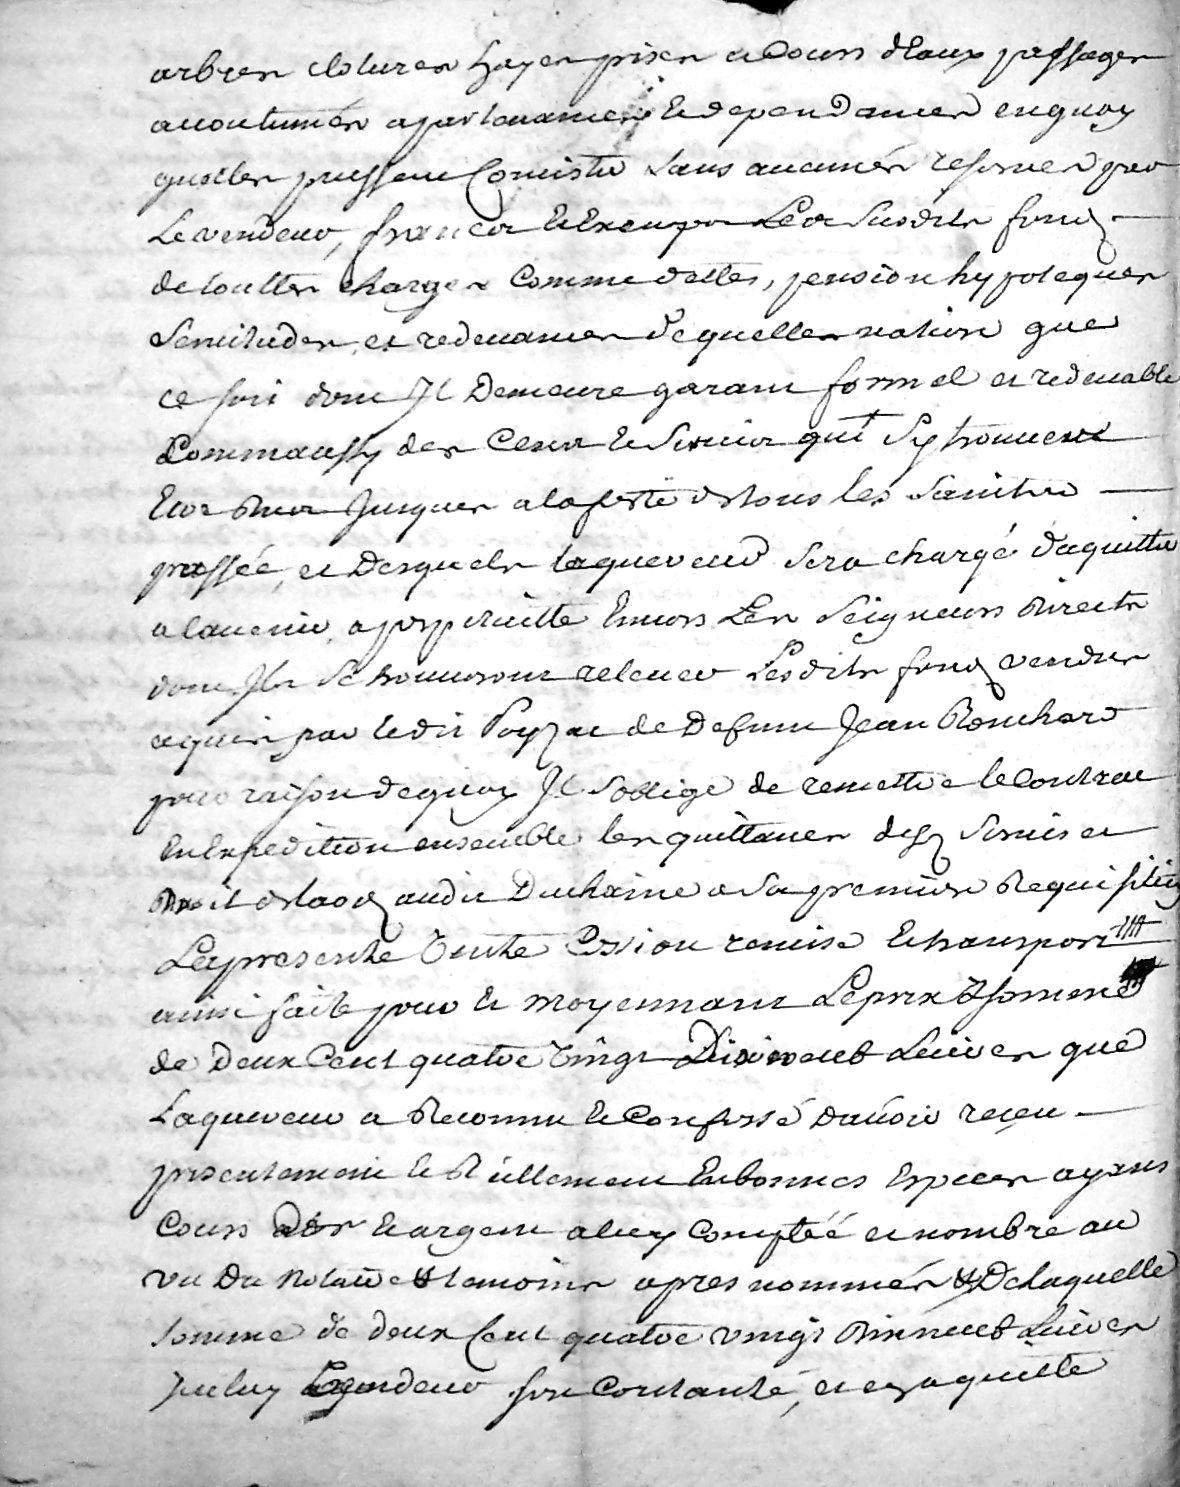 arbres clotures hayes prises et cours d'eaux passages
accoutumés apartenances et dependances en quoy
quelles puissent consister sans aucunes reserves par
le vendeur, francs et exempts les susdits fonds
de touttes charges comme dettes, pension hypoteques
servitudes, et redevances de quelles nation que
ce soit dont Il demeure garant formel et redevable
comm'aussy des cens et servics qui s'y trouvent
Etre deus jusques a la feste de tous les saints
passée, et desquels laquereur sera chargé d'aquitter
a lavenir, a perpetuitte envers les seigneurs directs
dont Ils se trouveront relever lesdits fonds vendus
aquis par ledit Poyzac de defunt Jean Ronchard
pour raison de quoy Il s'oblige de remettre le contrat
en expedition ensemble les quittances des servis et
droit de laods audit Duchaine a sa premiere Requisition
La presente vente cession remise et transport
ainsi faite pour et moyennant le prix et somme
de deux cent quatre vingt dixneuf livres que
laquereur a Reconnu et confessé d'avoir reçeu
presentement et Réellement en bonnes especes ayant
cours d'or et argent a luy comptéé et nombré au
vu du notaire et temoins apres nommés & De laquelle
somme de deux cent quatre vingt dixneuf livres
Iceluy vendeur sen contante, et en aquitte